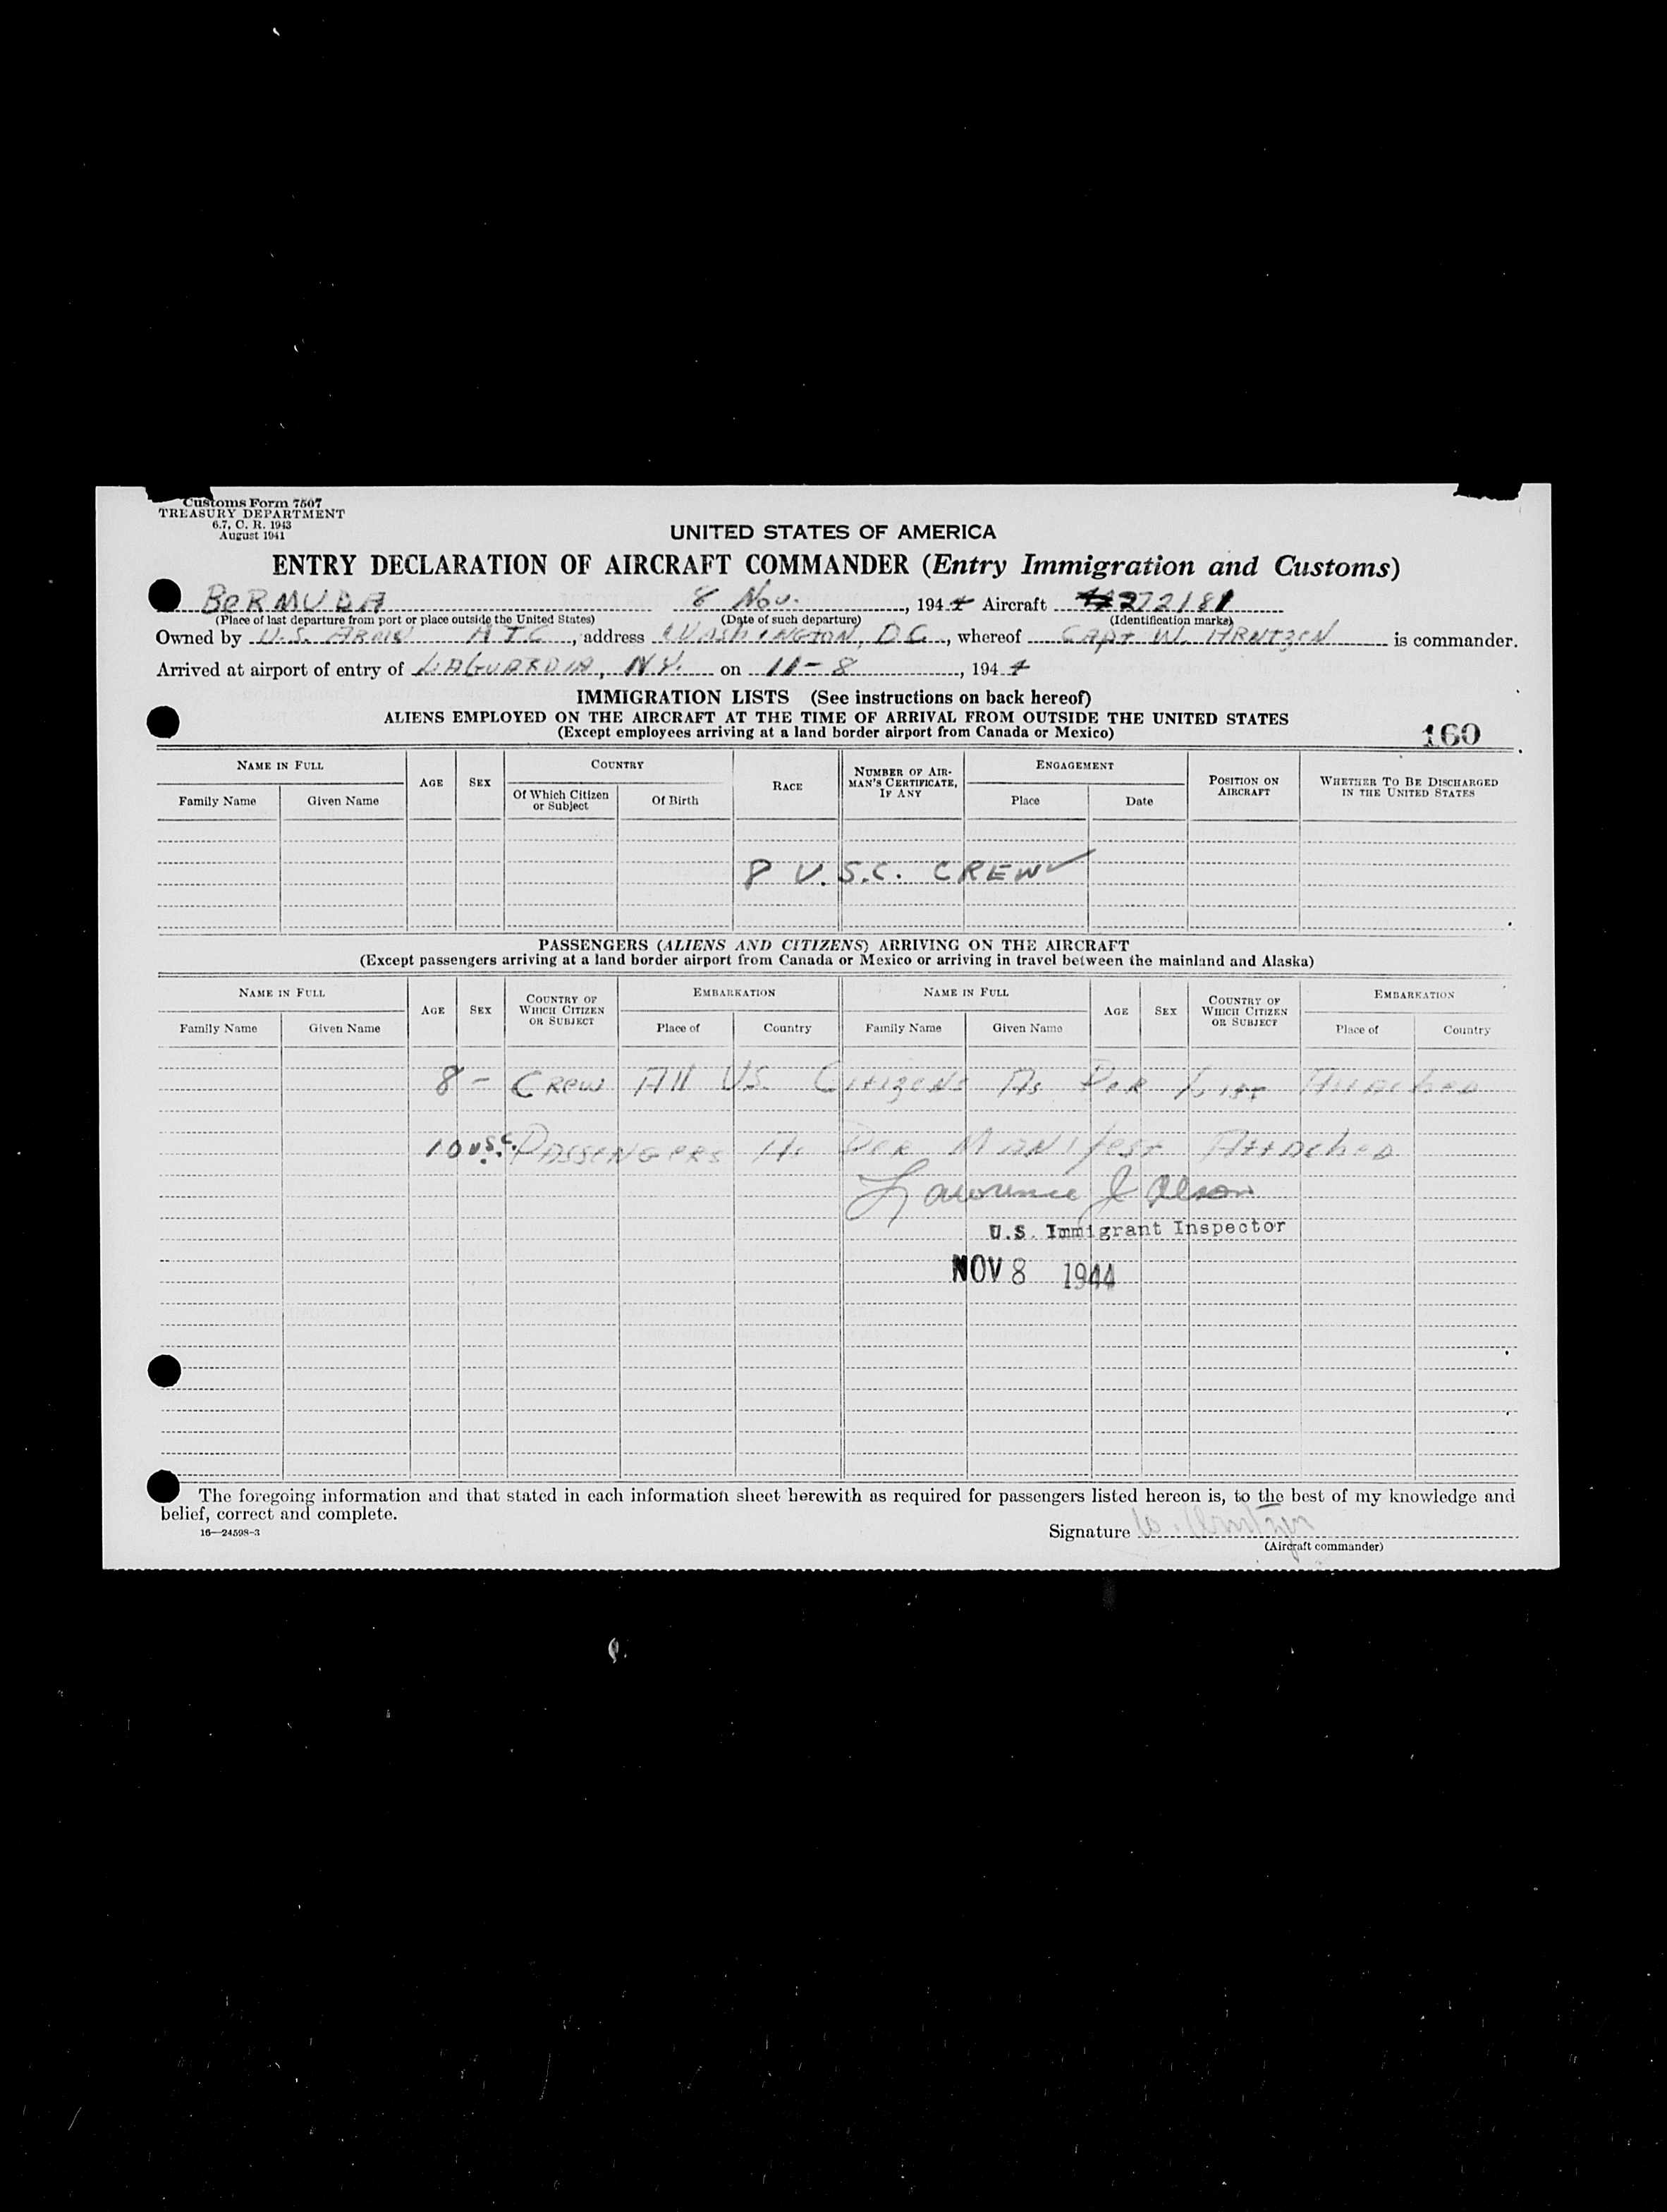 Customs Form 7507
TREASURY DEPARTMENT
6.7, C. R. 1943
August 1941
UNITED STATES OF AMERICA
ENTRY DECLARATION OF AIRCRAFT COMMANDER (Entry Immigration and Customs)
BERMUDA 8 Nov. , 1944 Aircraft 272181
(Place of last departure from port or place outside the United States) (Date of such departure) (Identification marks)
Owned by U.S. ARMY ATC , address WASHINGTON, DC , whereof CAPT W. ARNTZEN is commander.
Arrived at airport of entry of LAGUARDIA, N.Y. on 11-8 , 1944
IMMIGRATION LISTS (See instructions on back hereof)
ALIENS EMPLOYED ON THE AIRCRAFT AT THE TIME OF ARRIVAL FROM OUTSIDE THE UNITED STATES
(Except employees arriving at a land border airport from Canada or Mexico)
160
NAME IN FULL AGE SEX COUNTRY RACE NUMBER OF AIRMAN'S CERTIFICATE, IF ANY ENGAGEMENT POSITION ON AIRCRAFT WHETHER TO BE DISCHARGED IN THE UNITED STATES
Family Name Given Name Of Which Citizen or Subject Of Birth Place Date
8 U.S.C. CREW ✓
PASSENGERS (ALIENS AND CITIZENS) ARRIVING ON THE AIRCRAFT
(Except passengers arriving at a land border airport from Canada or Mexico or arriving in travel between the mainland and Alaska)
NAME IN FULL AGE SEX COUNTRY OF WHICH CITIZEN OR SUBJECT EMBARKATION NAME IN FULL AGE SEX COUNTRY OF WHICH CITIZEN OR SUBJECT EMBARKATION
Family Name Given Name Place of Country Family Name Given Name Place of Country
8 - CREW All US. Citizens As PER List Attached
10 U.S.C. PASSENGERS As PER Manifest Attached
Lawrence J Olson
U.S. Immigrant Inspector
NOV 8 1944
The foregoing information and that stated in each information sheet herewith as required for passengers listed hereon is, to the best of my knowledge and
belief, correct and complete.
16—24598-3
Signature W. Arntzen
(Aircraft commander)